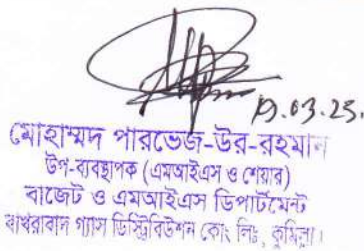 ১৯.০৩.২৫.
মোহাম্মদ পারভেজ-উর-রহমান
উপ-ব্যবস্থাপক (এমআইএস ও শেয়ার)
বাজেট ও এমআইএস ডিপার্টমেন্ট
বাখরাবাদ গ্যাস ডিস্ট্রিবিউশন কোং লিঃ, কুমিল্লা।